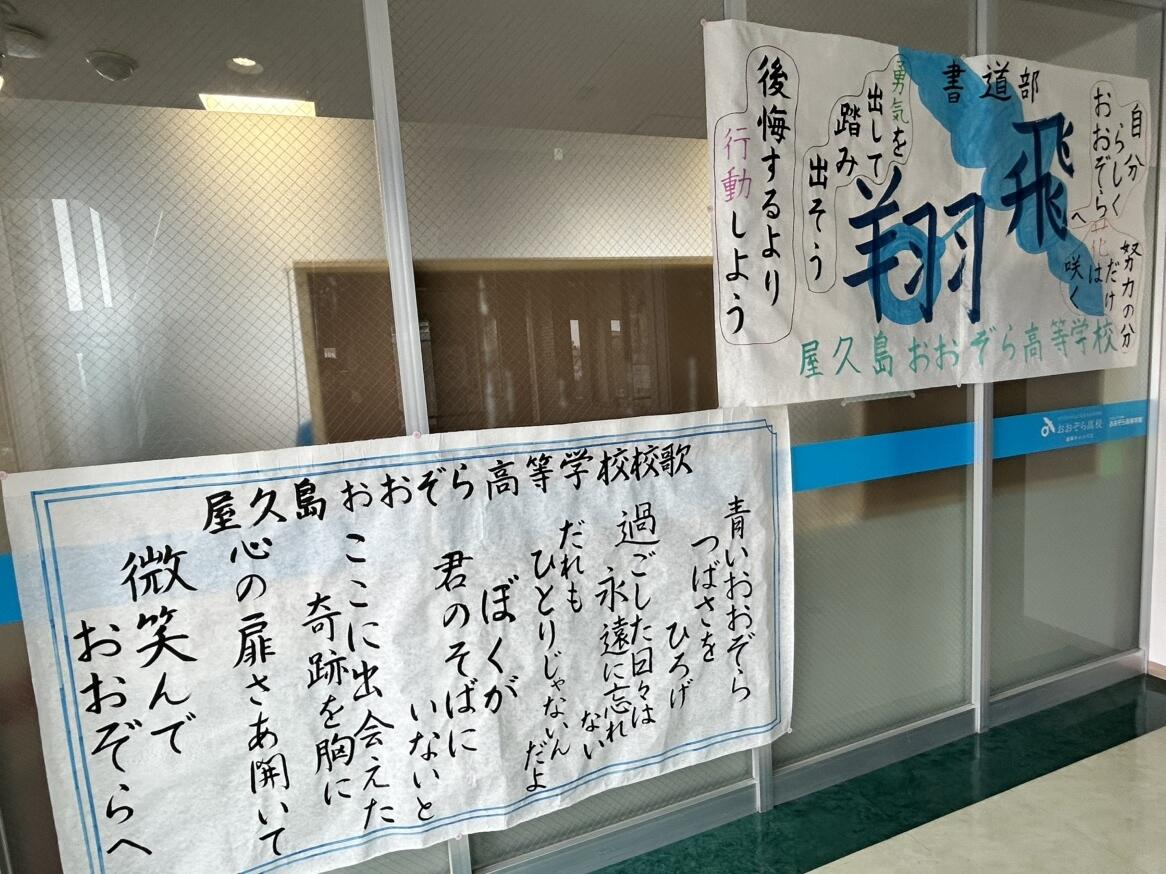 書道部
飛翔
自分
らしく
おおぞらへ
努力の分
だけ
花は
咲く
勇気を
出して
踏み
出そう
後悔するより
行動しよう
屋久島おおぞら高等学校
おおぞら高校
屋久島おおぞら高等学校校歌
青いおおぞら
つばさを
ひろげ
過ごした日々は
永遠に忘れ
ない
だれも
ひとりじゃないん
だよ
ぼくが
君のそばに
いないと
ここに出会えた
奇跡を胸に
心の扉さあ開いて
微笑んで
おおぞらへ